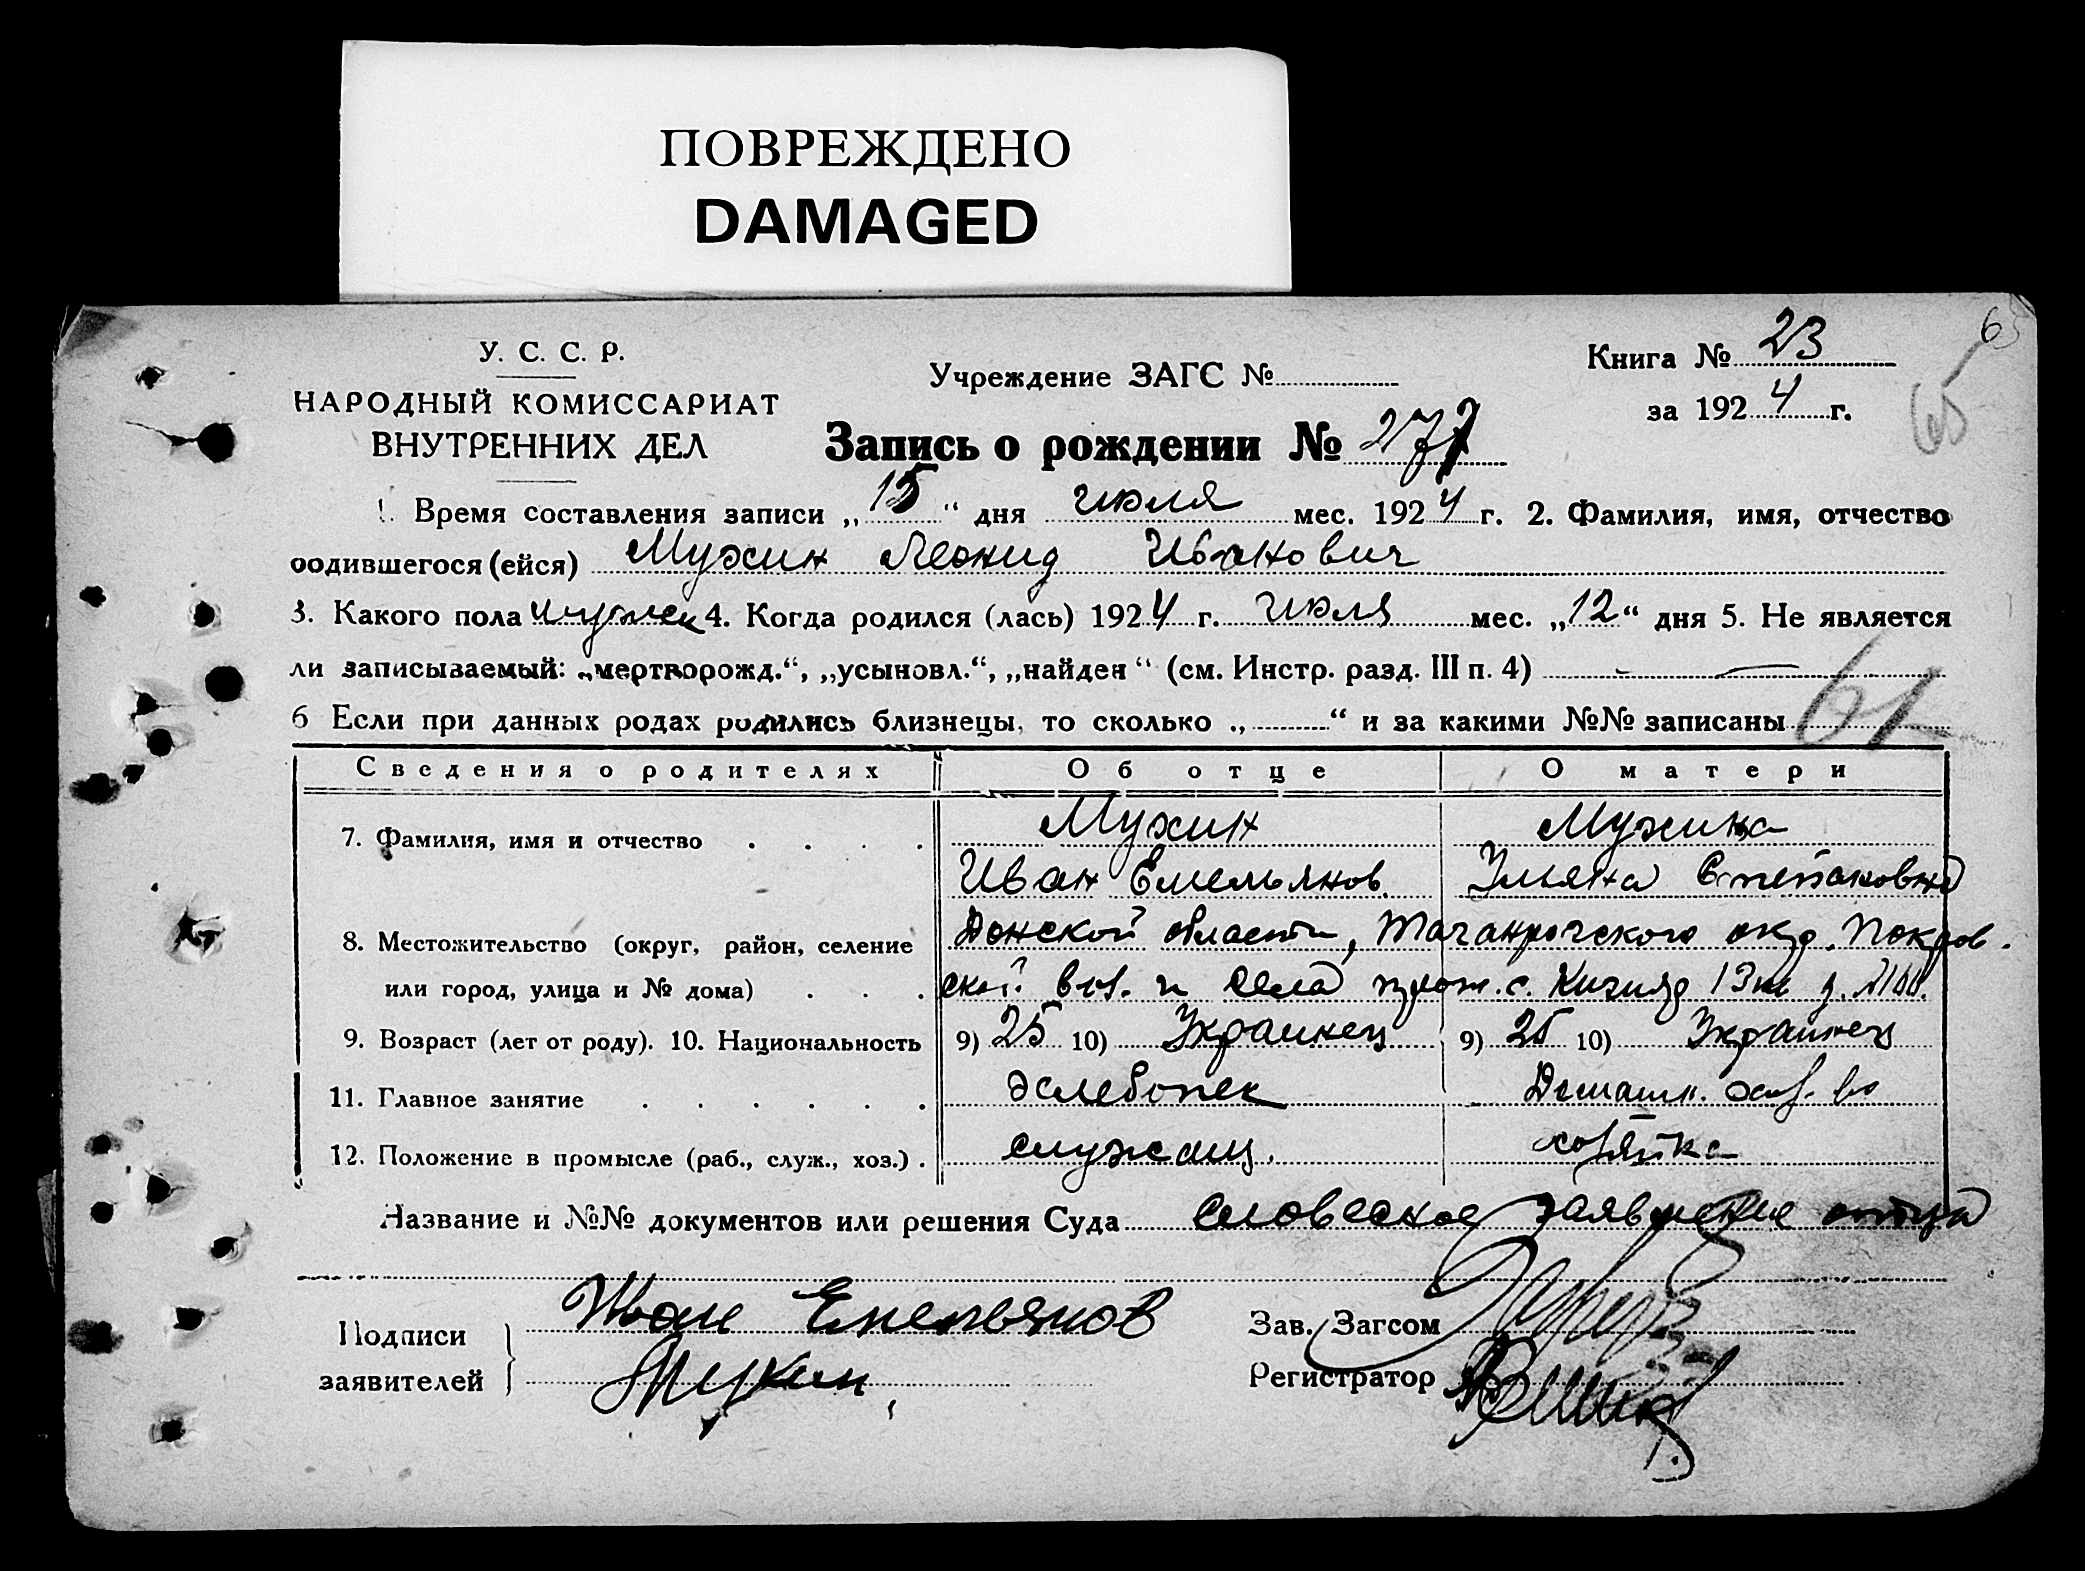 ПОВРЕЖДЕНО
DAMAGED
63
У. С. С. Р.
НАРОДНЫЙ КОМИССАРИАТ
ВНУТРЕННИХ ДЕЛ
Учреждение ЗАГС №
Книга № 23
за 1924 г.
65
Запись о рождении № 277
1. Время составления записи „15“ дня июля мес. 1924 г. 2. Фамилия, имя, отчество
родившегося (ейся) Мухин Леонид Иванович
3. Какого пола мужск 4. Когда родился (лась) 1924 г. июля мес. „12“ дня 5. Не является
ли записываемый: „мертворожд.“, „усыновл.“, „найден“ (см. Инстр. разд. III п. 4)
6 Если при данных родах родились близнецы, то сколько „ “ и за какими №№ записаны
61
Сведения о родителях Об отце О матери
7. Фамилия, имя и отчество Мухин Мухина
Иван Емельянов. Ульяна Степановна
8. Местожительство (округ, район, селение Донской области, Таганрогского окр. Покров.
или город, улица и № дома) ской вол. и села прож. с.
9. Возраст (лет от роду). 10. Национальность 9) 25 10) Украинец 9) 25 10) Украинец
11. Главное занятие хлебопек Домашн. хоз. во
12. Положение в промысле (раб., служ., хоз.) служащ. хозяйка
Название и №№ документов или решения Суда словесное заявление отца
Подписи Иван Емельянов
заявителей Мухин
Зав. Загсом
Регистратор